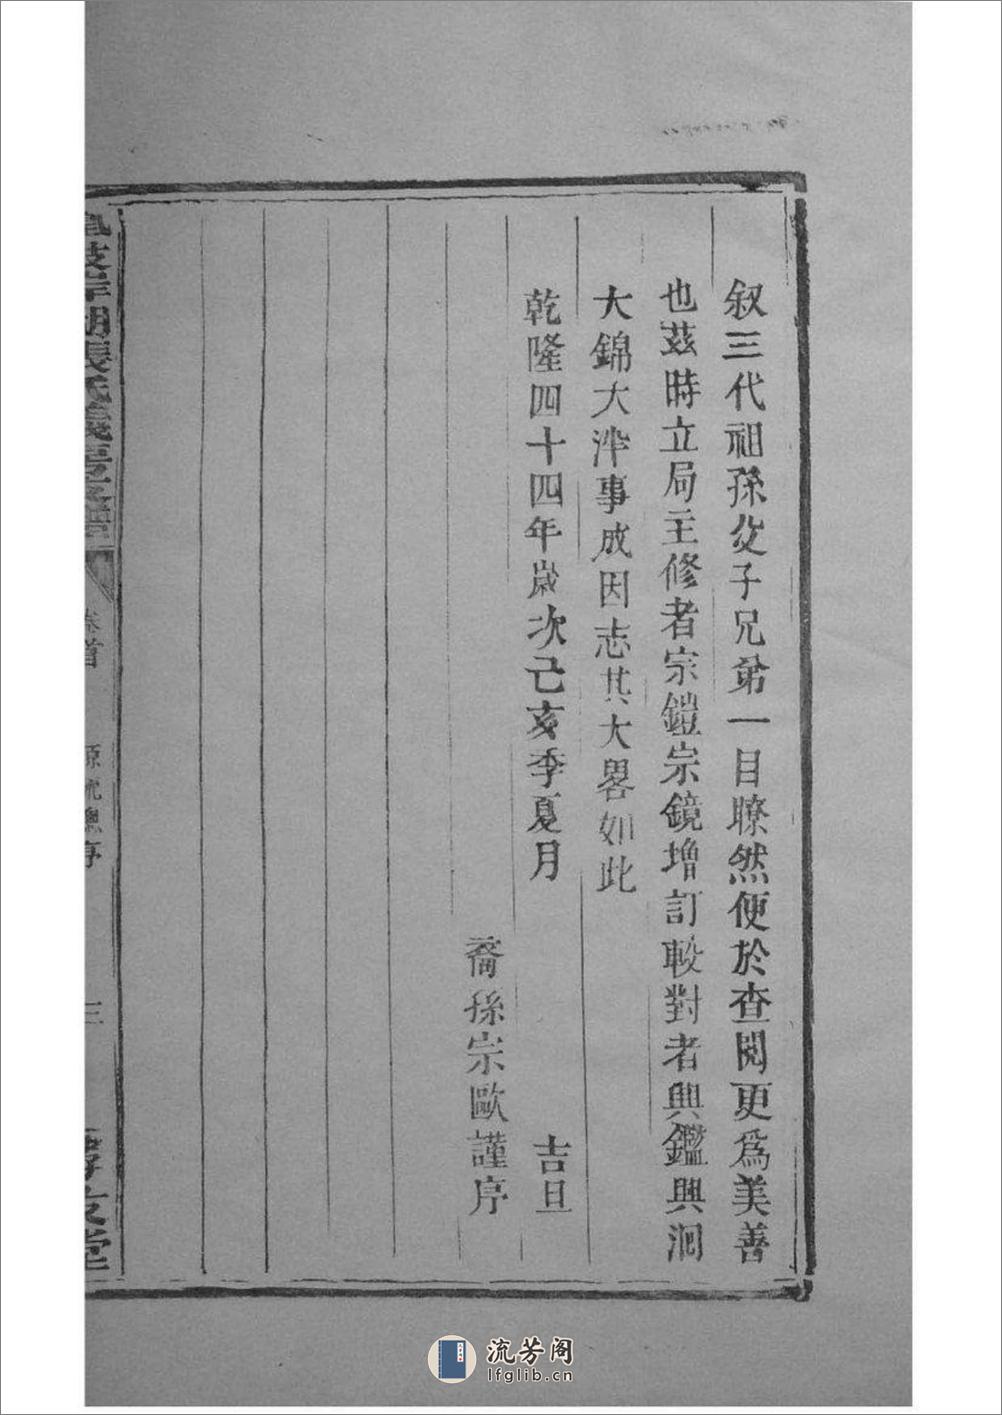 叙三代祖孫父子兄弟一目瞭然便於查閱更爲美善
也茲時立局主修者宗鎧宗鏡增訂較對者興鑑興泂
大錦大泮事成因志其大畧如此
乾隆四十四年歲次己亥季夏月 吉旦
裔孫宗歐謹序
湖張氏義房支譜
卷首
源流總序
三
孝友堂
流芳阁
lfglib.cn